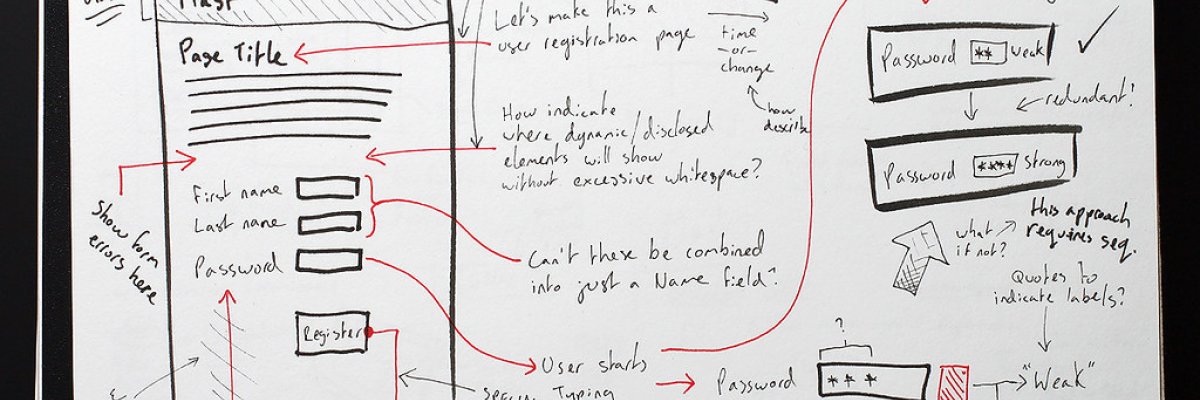 Page Title
Let's make this a
user registration page
time
-or-
change
how
describe
How indicate
where dynamic/disclosed
elements will show
without excessive whitespace?
First name
Last name
Password
Register
Show form
errors here
Can't these be combined
into just a Name field?
User starts
Typing
Password ** weak
redundant?
Password **** strong
this approach
requires seq.
what
if not?
Quotes to
indicate labels?
?
Password ***
"Weak"